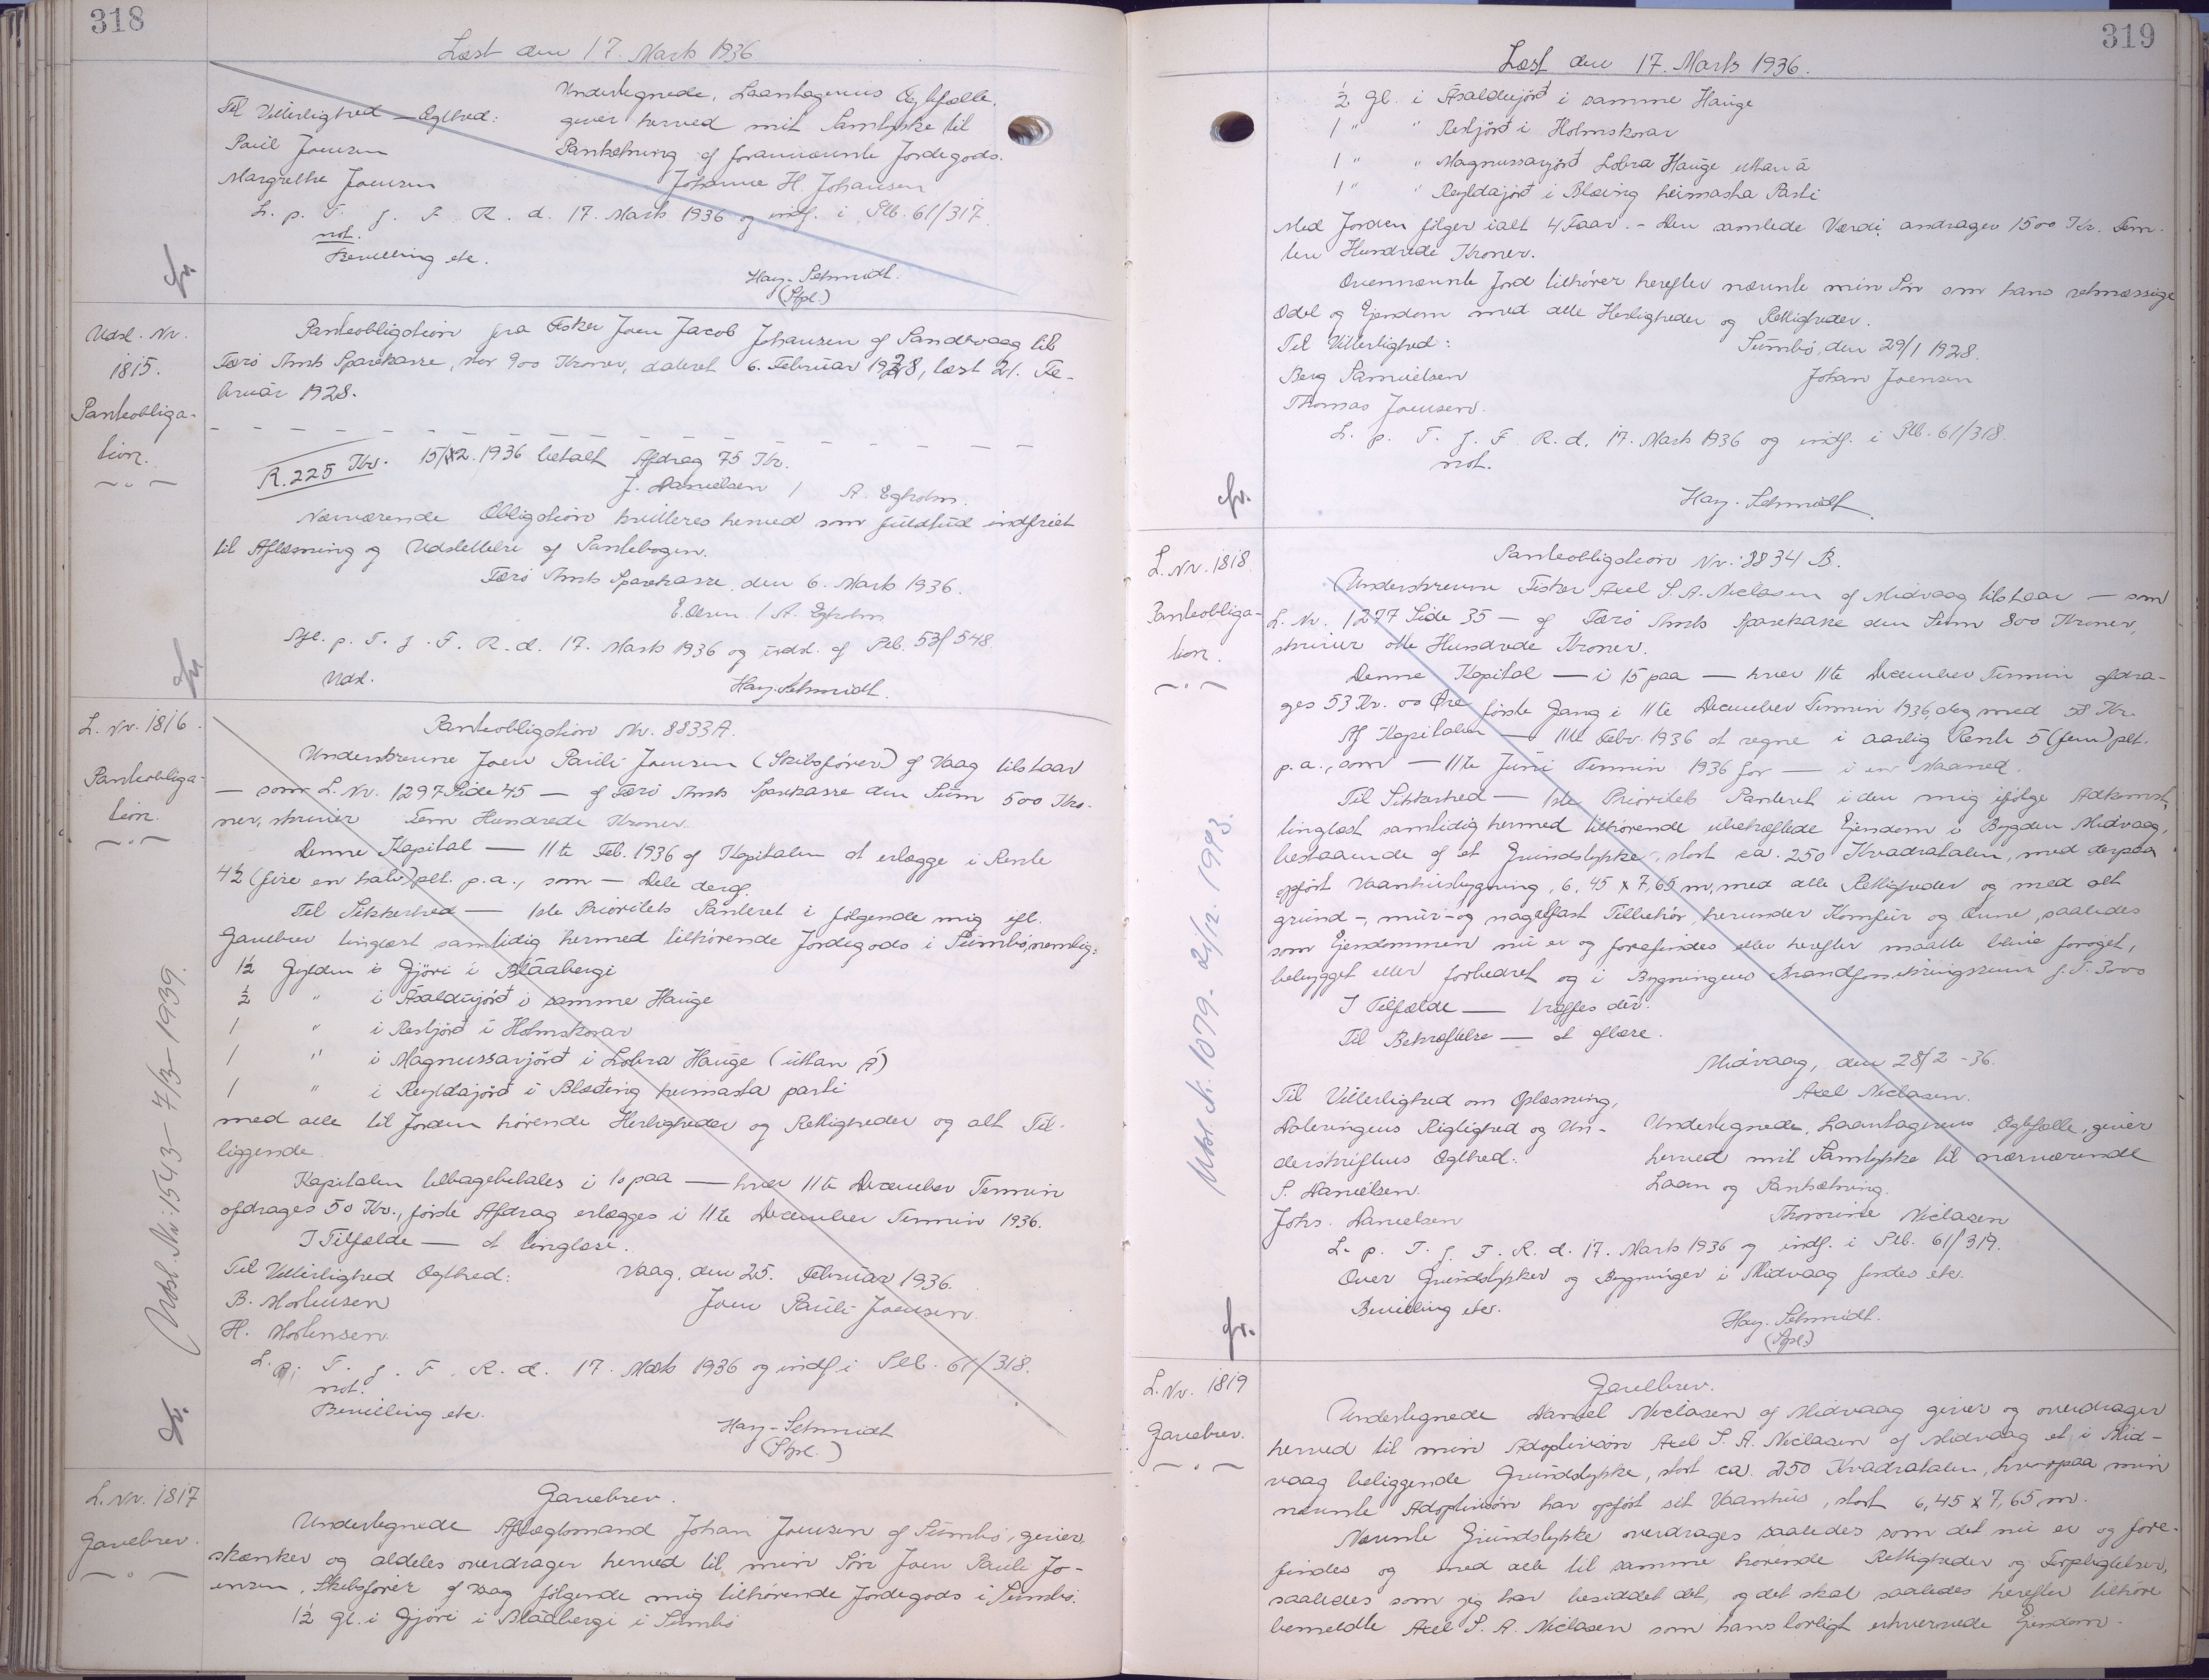 318
Læst den 17. Marts 1936
Til Vitterlighed — Ægthed:
Undertegnede, Laantagerens Ægtefælle,
giver herved mit Samtykke til
Pantsætning af forannævnte Jordegods.
Paul Joensen
Margrethe Joensen
Johanne H. Johansen
L. p. T. f. F. R. d. 17. Marts 1936 og indf. i Pb. 61/317.
not.
Bevilling etc.
Hay-Schmidt.
(Sfpl.)
Udsl. Nr.
1815.
Panteobliga-
tion.
Panteobligation fra Fisker Joen Jacob Johansen af Sandevaag til
Færø Amts Sparekasse, stor 900 Kroner, dateret 6. Februar 1928, læst 21. Fe-
bruar 1928.
R. 225 Kr. 15/12.1936 betalt Afdrag 75 Kr.
J. Danielsen / A. Egholm.
Nærværende Obligation kvitteres herved som fuldtud indfriet
til Aflæsning og Udslettelse af Pantebogen.
Færø Amts Sparekasse, den 6. Marts 1936.
E. Olsen / A. Egholm
Afl. p. T. f. F. R. d. 17. Marts 1936 og udsl. af Pb. 53/548.
Udsl.
Hay-Schmidt.
L. Nr. 1816.
Panteobliga-
tion.
Panteobligation Nr. 8833 A.
Underskrevne Joen Pauli Joensen (Skibsfører) af Vaag tilstaar
— som L. Nr. 1297 Side 45 — af Færø Amts Sparekasse den Sum 500 Kro-
ner, skriver Fem Hundrede Kroner.
Denne Kapital — 11te Feb. 1936 af Kapitalen at erlægge i Rente
4½ (fire en halv) pct. p.a., som — Dele deraf.
Til Sikkerhed — 1ste Prioritets Panteret i følgende mig ifl.
Gavebrev tinglæst samtidig hermed tilhørende Jordegods i Sumbø, nemlig:
1½ Gylden i Gjøri i Bláabergi
½ " i Ásaldujørð i samme Hauge
1 " i Restjørð i Holmskorar
1 " i Magnussarjørð i Lobra Hauge (uttan Á)
1 " i Reyldajørð i Blæðing heimasta parti
med alle til Jorden hørende Herligheder og Rettigheder og alt Til-
liggende.
Kapitalen tilbagebetales i 10 paa — hver 11te December Termin
afdrages 50 Kr., første Afdrag erlægges i 11te December Termin 1936.
I Tilfælde — at tinglæse.
Til Vitterlighed Ægthed:
Vaag, den 25. Februar 1936.
B. Mortensen
Joen Pauli Joensen
H. Mortensen
L. p. T. f. F. R. d. 17. Marts 1936 og indf. i Pb. 61/318.
not.
Bevilling etc.
Hay-Schmidt
(Sfpl.)
Udsl. Nr: 1543 - 7/3 - 1939.
L. Nr. 1817
Gavebrev.
Gavebrev.
Undertegnede Aftægtsmand Johan Joensen af Sumbø, giver,
skænker og aldeles overdrager herved til min Søn Joen Pauli Jo-
ensen, Skibsfører af Vaag følgende mig tilhørende Jordegods i Sumbø.
1½ Gl. i Gjøri i Bláabergi i Sumbø
319
Læst den 17. Marts 1936.
½ Gl. i Ásaldujørð i samme Hauge
1 " " Restjørð i Holmskorar
1 " " Magnussarjørð Lobra Hauge uttan á
1 " " Reyldajørð i Blæing heimasta Parti
Med Jorden følger ialt 4 Faar. - Den samlede Værdi andrager 1500 Kr. Fem-
ten Hundrede Kroner.
Ovennævnte Jord tilhører herefter nævnte min Søn som hans retmæssige
Odel og Ejendom med alle Herligheder og Rettigheder.
Til Vitterlighed:
Sumbø, den 29/1 1928.
Berg Samuelsen
Johan Joensen
Thomas Joensen.
L. p. T. f. F. R. d. 17. Marts 1936 og indf. i Pb. 61/318.
not.
Hay-Schmidt.
L. Nr. 1818.
Panteobliga-
tion.
Panteobligation Nr. 8834 B.
Underskrevne Fisker Axel S. A. Niclasen af Midvaag tilstaar — som
L. Nr. 1277 Side 35 — af Færø Amts Sparekasse den Sum 800 Kroner,
skriver otte Hundrede Kroner.
Denne Kapital — i 15 paa — hver 11te December Termin afdra-
ges 53 Kr. 00 Øre første Gang i 11te December Termin 1936, dog med 58 Kr.
Af Kapitalen — 11te Febr. 1936 at regne i aarlig Rente 5 (fem) pct.
p.a., som — 11te Juni Termin 1936 for — i en Maaned.
Til Sikkerhed — 1ste Prioritets Panteret i den mig ifølge Adkomst,
tinglæst samtidig hermed tilhørende ubehæftede Ejendom i Bygden Midvaag,
bestaaende af et Grundstykke, stort ca. 250 Kvadratalen, med derpaa
opført Vaaningsbygning, 6,45 x 7,65 m, med alle Rettigheder og med alt
grund-, mur- og nagelfast Tilbehør, herunder Komfur og Ovne, saaledes
som Ejendommen nu er og forefindes eller herefter maatte blive forøget,
bebygget eller forbedret og i Bygningens Brandforsikringssum f. T. 3000
I Tilfælde — træffes der.
Til Bekræftelse — at aflæse.
Midvaag, den 28/2 - 36.
Til Vitterlighed om Oplæsning,
Axel Niclasen.
Dateringens Rigtighed og Un-
derskriftens Ægthed:
Undertegnede, Laantagerens Ægtefælle, giver
herved mit Samtykke til nærværende
Laan og Pantsætning.
S. Danielsen.
Johs. Danielsen
Thomine Niclasen
L. p. T. f. F. R. d. 17. Marts 1936 og indf. i Pb. 61/319.
Over Grundstykker og Bygninger i Midvaag findes etc.
Bevilling etc.
Hay-Schmidt.
(Sfpl.)
Udsl. Nr. 1079 - 21/12. 1943.
L. Nr. 1819
Gavebrev.
Gavebrev.
Undertegnede Daniel Niclasen af Midvaag giver og overdrager
herved til min Adoptivsøn Axel S. A. Niclasen af Midvaag et i Mid-
vaag beliggende Grundstykke, stort ca. 250 Kvadratalen, hvorpaa min
nævnte Adoptivsøn har opført sit Vaanhus, stort 6,45 x 7,65 m.
Nævnte Grundstykke overdrages saaledes som det nu er og fore-
findes og med alle til samme hørende Rettigheder og Forpligtelser,
saaledes som jeg har besiddet det, og det skal saaledes herefter tilhøre
bemeldte Axel S. A. Niclasen som hans lovligt erhvervede Ejendom.